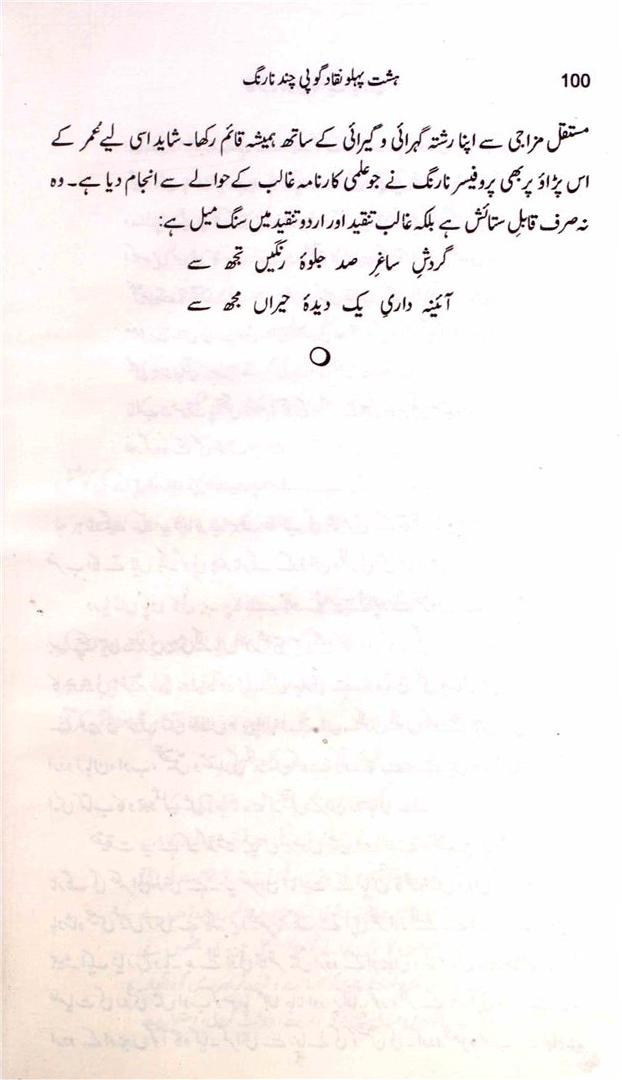 100 ہشت پہلو نقاد گوپی چند نارنگ
مستقل مزاجی سے اپنا رشتہ گہرائی و گیرائی کے ساتھ ہمیشہ قائم رکھا۔ شاید اسی لیے عمر کے
اس پڑاؤ پر بھی پروفیسر نارنگ نے جو علمی کارنامہ غالب کے حوالے سے انجام دیا ہے۔ وہ
نہ صرف قابلِ ستائش ہے بلکہ غالب تنقید اور اردو تنقید میں سنگ میل ہے:
گردشِ ساغرِ صد جلوۂ رنگیں تجھ سے
آئینہ داریِ یک دیدۂ حیراں مجھ سے